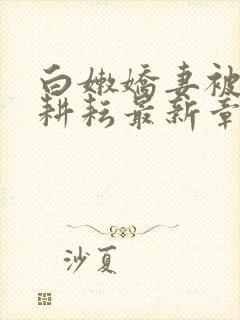 白嫩嬌妻被
耕耘最新章
沙夏